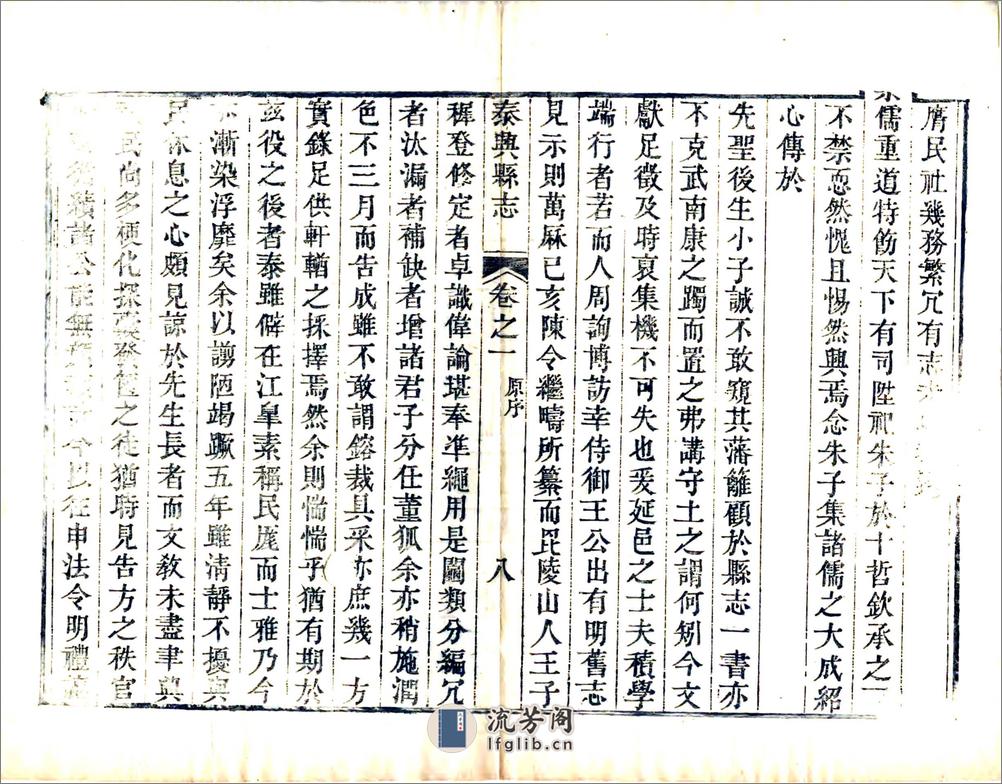 膺民社幾務繁冗有志
崇儒重道特飭天下有司陞祀朱子於十哲欽承之一
不禁恧然愧且惕然興焉念朱子集諸儒之大成紹
心傳於
先聖後生小子誠不敢窺其藩籬顧於縣志一書亦
不克武南康之躅而置之弗講守土之謂何矧今文
獻足徵及時裒集機不可失也爰延邑之士夫積學
端行者若而人周詢博訪幸侍御王公出有明舊志
見示則萬厤已亥陳令繼疇所纂而毘陵山人王子
泰興縣志
卷之一
原序
八
穉登修定者卓識偉論堪奉準繩用是闢類分編冗
者汰漏者補缺者增諸君子分任董狐余亦稍施潤
色不三月而告成雖不敢謂鎔裁具采亦庶幾一方
實錄足供軒輶之採擇焉然余則惴惴乎猶有期於
玆役之後者泰雖僻在江皋素稱民庬而士雅乃今
漸染浮靡矣余以謭陋竭蹶五年雖淸靜不擾與
民休息之心頗見諒於先生長者而文敎未盡聿興
民尚多梗化探之徒猶時見告方之秩官
績諸公能無以往申法令明禮
流芳阁
lfglib.cn